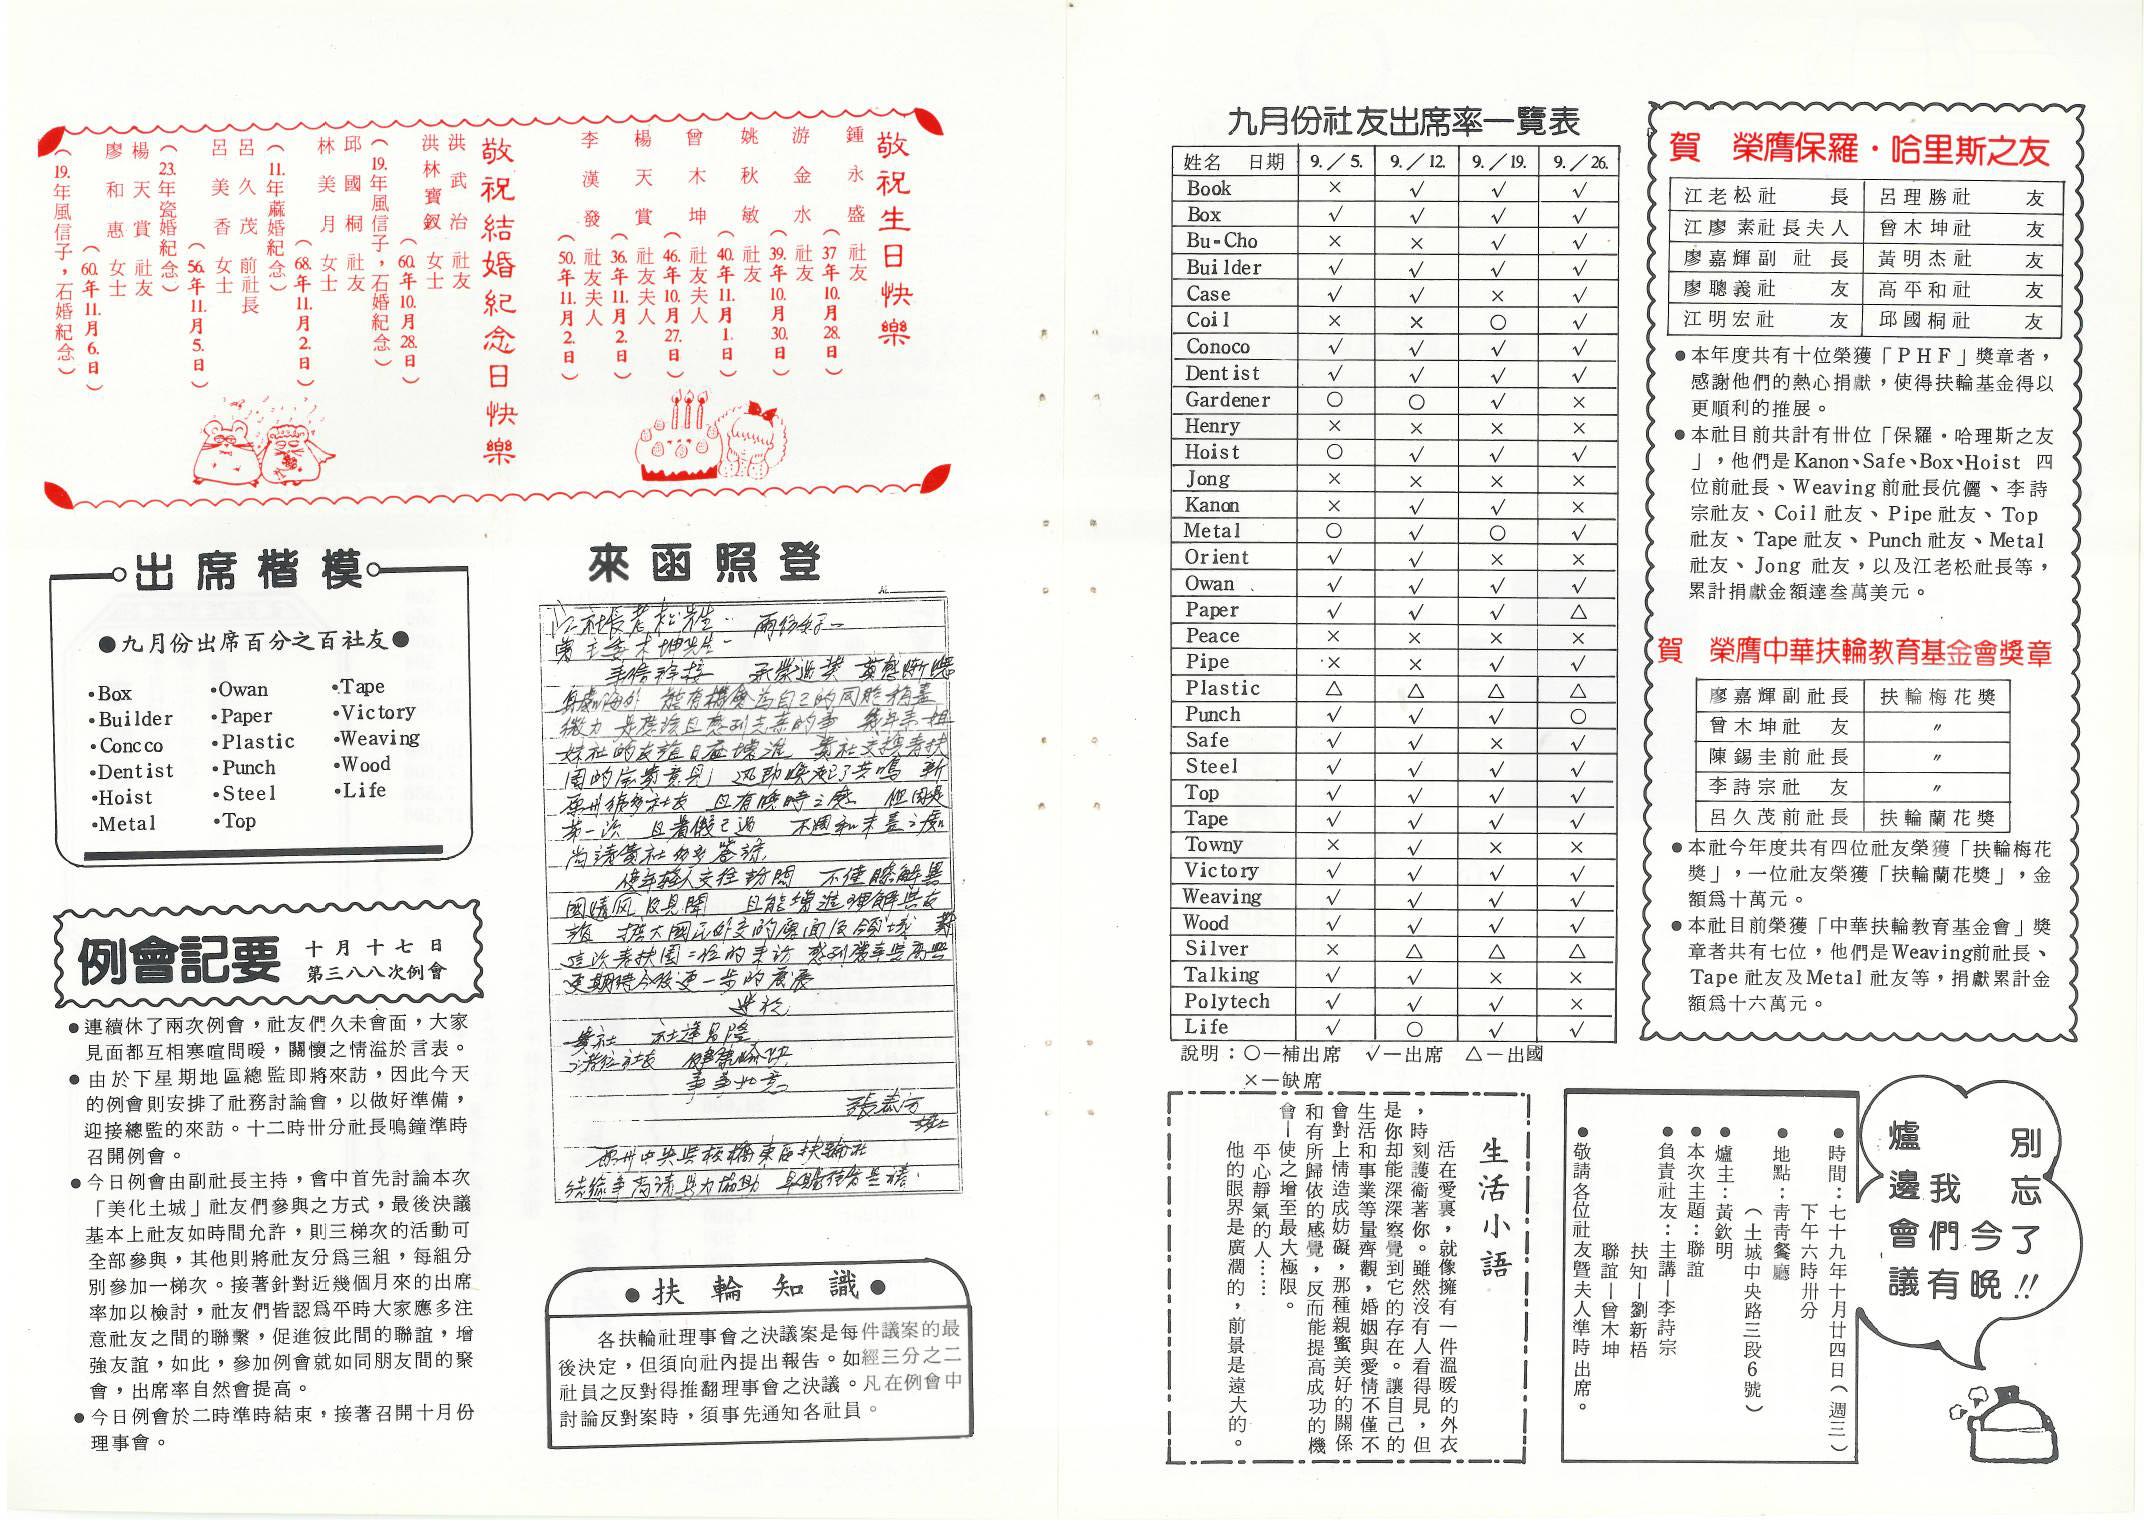 敬祝生日快樂
鍾永盛 社友
(37年10月28.日)
游金水 社友
(39.年10.月30.日)
姚秋敏 社友
(40.年11.月1.日)
曾木坤 社友夫人
(46.年10.月27.日)
楊天賞 社友夫人
(36.年11.月2.日)
李漢發 社友夫人
(50.年11.月2.日)
敬祝結婚紀念日快樂
洪武治 社友
洪林寶釵 女士
(60.年10.月28.日)
(19.年風信子,石婚紀念)
邱國桐 社友
林美月 女士
(68.年11.月2.日)
(11.年蔴婚紀念)
呂久茂 前社長
呂美香 女士
(56.年11.月5.日)
(23.年瓷婚紀念)
楊天賞 社友
廖和惠 女士
(60.年11.月6.日)
(19.年風信子,石婚紀念)
出席楷模
●九月份出席百分之百社友●
•Box •Owan •Tape
•Builder •Paper •Victory
•Concco •Plastic •Weaving
•Dentist •Punch •Wood
•Hoist •Steel •Life
•Metal •Top
例會記要
十月十七日
第三八八次例會
●連續休了兩次例會,社友們久未會面,大家
見面都互相寒喧問暖,關懷之情溢於言表。
●由於下星期地區總監即將來訪,因此今天
的例會則安排了社務討論會,以做好準備,
迎接總監的來訪。十二時卅分社長鳴鐘準時
召開例會。
●今日例會由副社長主持,會中首先討論本次
「美化土城」社友們參與之方式,最後決議
基本上社友如時間允許,則三梯次的活動可
全部參與,其他則將社友分爲三組,每組分
別參加一梯次。接著針對近幾個月來的出席
率加以檢討,社友們皆認爲平時大家應多注
意社友之間的聯繫,促進彼此間的聯誼,增
強友誼,如此,參加例會就如同朋友間的聚
會,出席率自然會提高。
●今日例會於二時準時結束,接著召開十月份
理事會。
來函照登
江社長老松先生
曾主委木坤先生
身處海外 能有機會為自己的同胞稍盡
微力 是應該且感到去來的事 幾年來姐
妹社的友誼日益增進
第一次 且暑假已過 不週和未盡之處
尚請貴社多多答諒
使年輕人交往訪問 不僅瞭解異
國情风及見聞 且能增進理解與友
誼 擴大國民外交的層面及領域
更期待今後更一步的發展
貴社 社運昌隆
諸位社友 健康愉快
事事如意
●扶輪知識●
各扶輪社理事會之決議案是每件議案的最
後決定,但須向社內提出報告。如經三分之二
社員之反對得推翻理事會之決議。凡在例會中
討論反對案時,須事先通知各社員。
九月份社友出席率一覽表
姓名 日期 9./5. 9./12. 9./19. 9./26.
Book × √ √ √
Box √ √ √ √
Bu-Cho × × √ √
Builder √ √ √ √
Case √ √ × √
Coil × × ○ √
Conoco √ √ √ √
Dentist √ √ √ √
Gardener ○ ○ √ ×
Henry × × × ×
Hoist ○ √ √ √
Jong × × × ×
Kanon × √ √ ×
Metal ○ √ ○ √
Orient √ √ × ×
Owan √ √ √ √
Paper √ √ √ △
Peace × × × ×
Pipe × × √ √
Plastic △ △ △ △
Punch √ √ √ ○
Safe √ √ × √
Steel √ √ √ √
Top √ √ √ √
Tape √ √ √ √
Towny × √ × ×
Victory √ √ √ √
Weaving √ √ √ √
Wood √ √ √ √
Silver × △ △ △
Talking √ √ × ×
Polytech √ √ √ ×
Life √ ○ √ √
說明:○—補出席 √—出席 △—出國
×—缺席
生活小語
活在愛裏,就像擁有一件溫暖的外衣
,時刻護衛著你。雖然沒有人看得見,但
是你却能深深察覺到它的存在。讓自己的
生活和事業等量齊觀,婚姻與愛情不僅不
會對上情造成妨礙,那種親蜜美好的關係
和有所歸依的感覺,反而能提高成功的機
會—使之增至最大極限。
平心靜氣的人……
他的眼界是廣濶的,前景是遠大的。
賀 榮膺保羅・哈里斯之友
江老松社長 呂理勝社友
江廖素社長夫人 曾木坤社友
廖嘉輝副社長 黃明杰社友
廖聰義社友 高平和社友
江明宏社友 邱國桐社友
●本年度共有十位榮獲「PHF」獎章者,
感謝他們的熱心捐獻,使得扶輪基金得以
更順利的推展。
●本社目前共計有卅位「保羅・哈理斯之友
」,他們是Kanon、Safe、Box、Hoist 四
位前社長、Weaving前社長伉儷、李詩
宗社友、Coil社友、Pipe社友、Top
社友、Tape社友、Punch社友、Metal
社友、Jong 社友,以及江老松社長等,
累計捐獻金額達叁萬美元。
賀 榮膺中華扶輪教育基金會獎章
廖嘉輝副社長 扶輪梅花獎
曾木坤社友 〃
陳錫圭前社長 〃
李詩宗社友 〃
呂久茂前社長 扶輪蘭花獎
●本社今年度共有四位社友榮獲「扶輪梅花
獎」,一位社友榮獲「扶輪蘭花獎」,金
額爲十萬元。
●本社目前榮獲「中華扶輪教育基金會」獎
章者共有七位,他們是Weaving前社長、
Tape社友及Metal社友等,捐獻累計金
額爲十六萬元。
別忘了!!
今晚
我們有
爐邊會議
●時間:七十九年十月廿四日(週三)
下午六時卅分
●地點:靑靑餐廳
(土城中央路三段6號)
●爐主:黃欽明
●本次主題:聯誼
●負責社友:主講—李詩宗
扶知—劉新梧
聯誼—曾木坤
●敬請各位社友暨夫人準時出席。